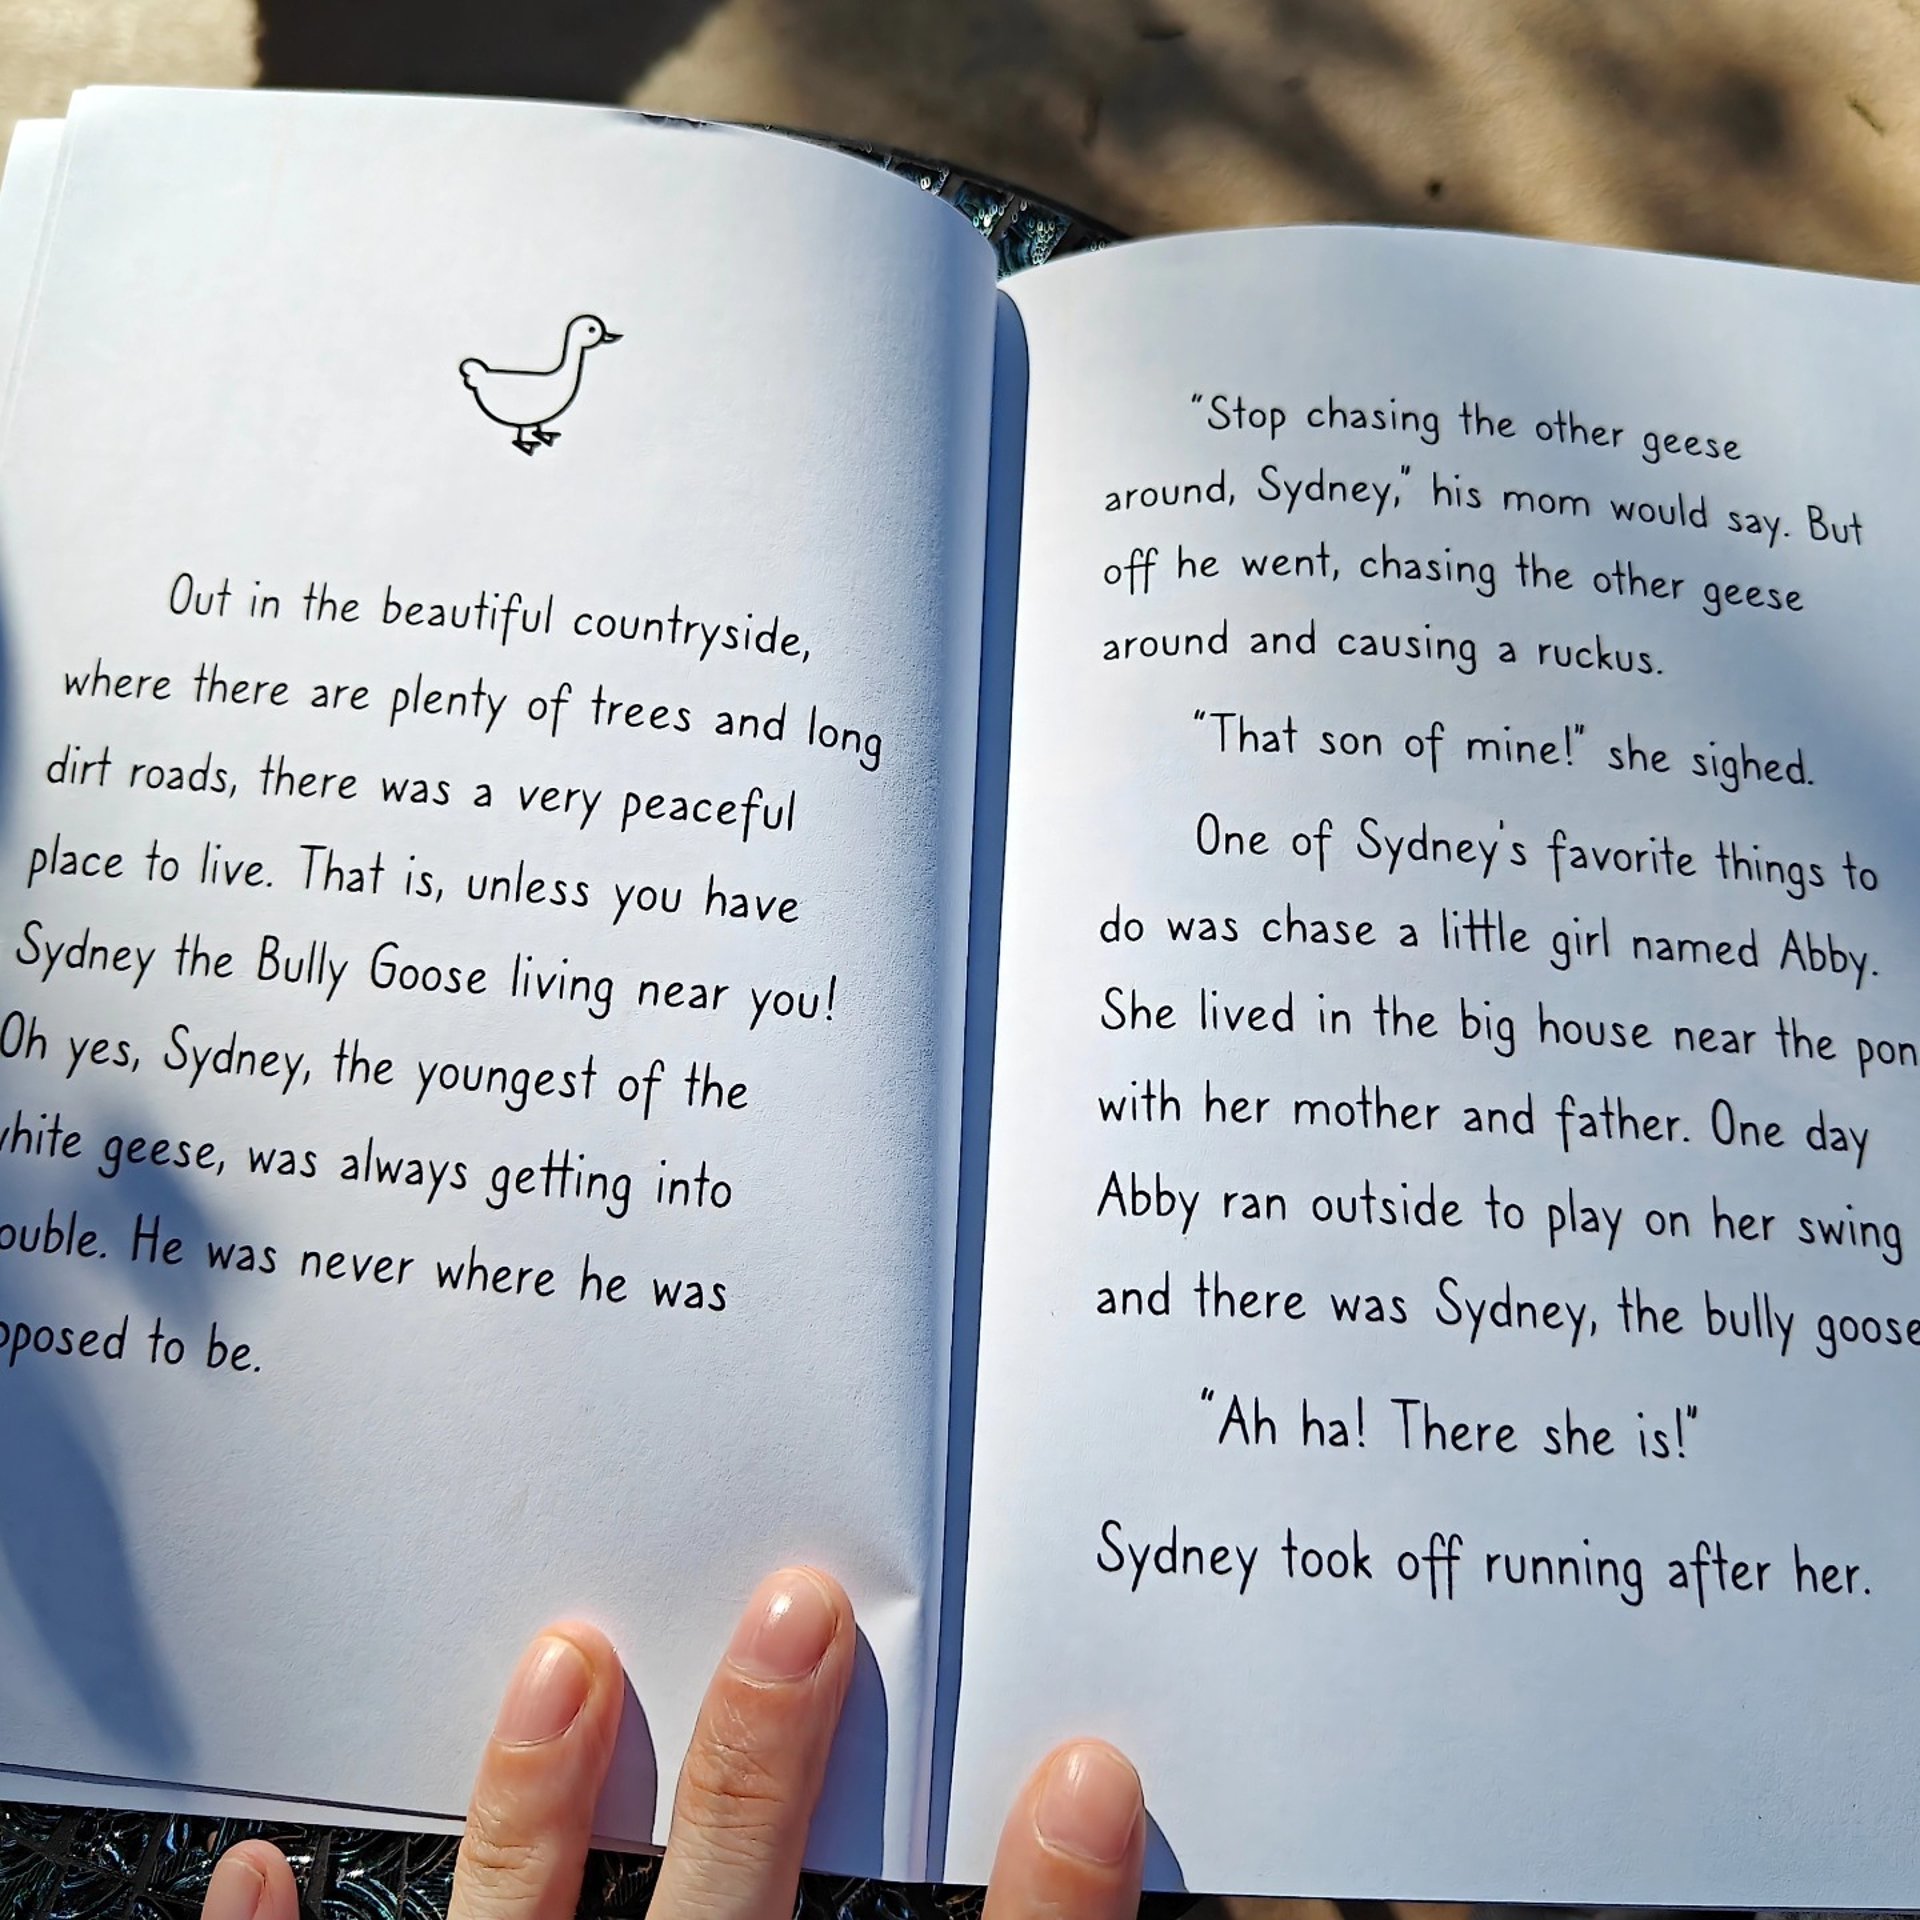 Out in the beautiful countryside,
where there are plenty of trees and long
dirt roads, there was a very peaceful
place to live. That is, unless you have
Sydney the Bully Goose living near you!
Oh yes, Sydney, the youngest of the
white geese, was always getting into
ouble. He was never where he was
pposed to be.
“Stop chasing the other geese
around, Sydney,” his mom would say. But
off he went, chasing the other geese
around and causing a ruckus.
“That son of mine!” she sighed.
One of Sydney's favorite things to
do was chase a little girl named Abby.
She lived in the big house near the pon
with her mother and father. One day
Abby ran outside to play on her swing
and there was Sydney, the bully goose
“Ah ha! There she is!”
Sydney took off running after her.